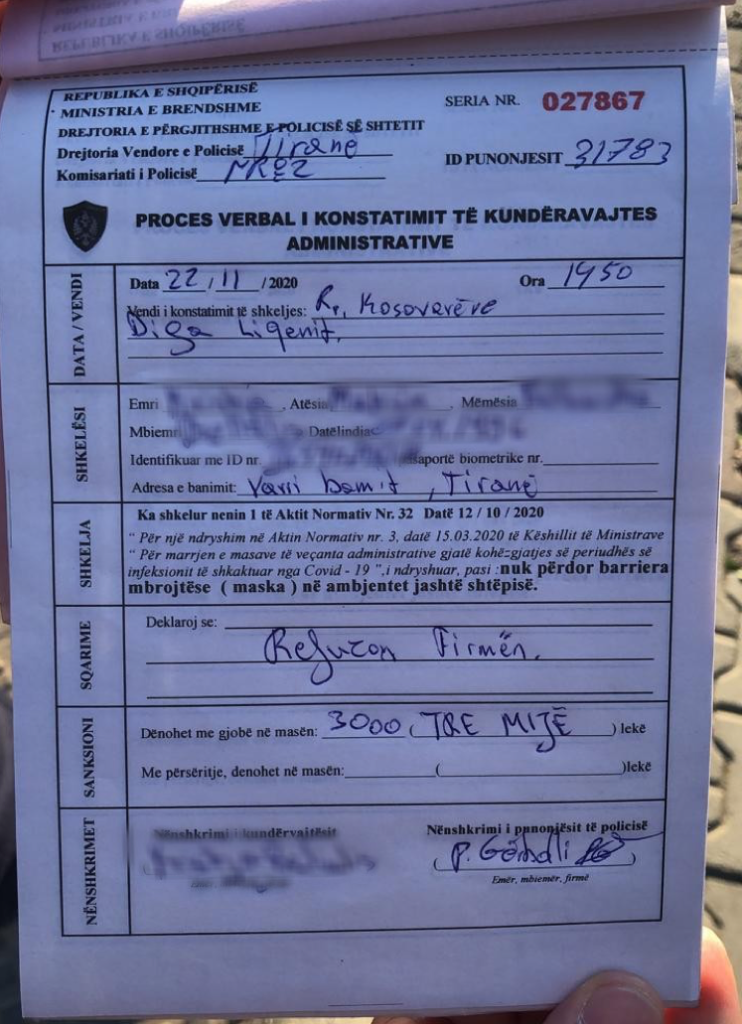 REPUBLIKA E SHQIPËRISË
MINISTRIA E BRENDSHME
DREJTORIA E PËRGJITHSHME E POLICISË SË SHTETIT
SERIA NR. 027867
Drejtoria Vendore e Policisë Tiranë
Komisariati i Policisë
ID PUNONJESIT 31783
PROCES VERBAL I KONSTATIMIT TË KUNDËRAVAJTES
ADMINISTRATIVE
DATA / VENDI
Data 22 / 11 / 2020 Ora 1950
Vendi i konstatimit të shkeljes: Rr, Kosovarëve
Diga Liqenit,
SHKELËSI
Emri , Atësia , Mëmësia
Mbiemri Datëlindja
Identifikuar me ID nr. biometrike nr.
Adresa e banimit: Varri bamit, Tiranë
SHKELJA
Ka shkelur nenin 1 të Aktit Normativ Nr. 32 Datë 12 / 10 / 2020
" Për një ndryshim në Aktin Normativ nr. 3, datë 15.03.2020 të Këshillit të Ministrave
" Për marrjen e masave të veçanta administrative gjatë kohëzgjatjes së periudhës së
infeksionit të shkaktuar nga Covid - 19 ",i ndryshuar, pasi :nuk përdor barriera
mbrojtëse ( maska ) në ambjentet jashtë shtëpisë.
SQARIME
Deklaroj se:
Refuzon Firmën.
SANKSIONI
Dënohet me gjobë në masën: 3000 ( TRE MIJË ) lekë
Me përsëritje, denohet në masën: ( )lekë
NËNSHKRIMET
Nënshkrimi i kundërvajtësit
Nënshkrimi i punonjësit të policisë
Emër, mbiemër, firmë